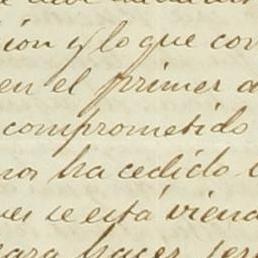 ion y lo que con
en el primer a
comprometido
nos ha cedido
se está viend
hacer